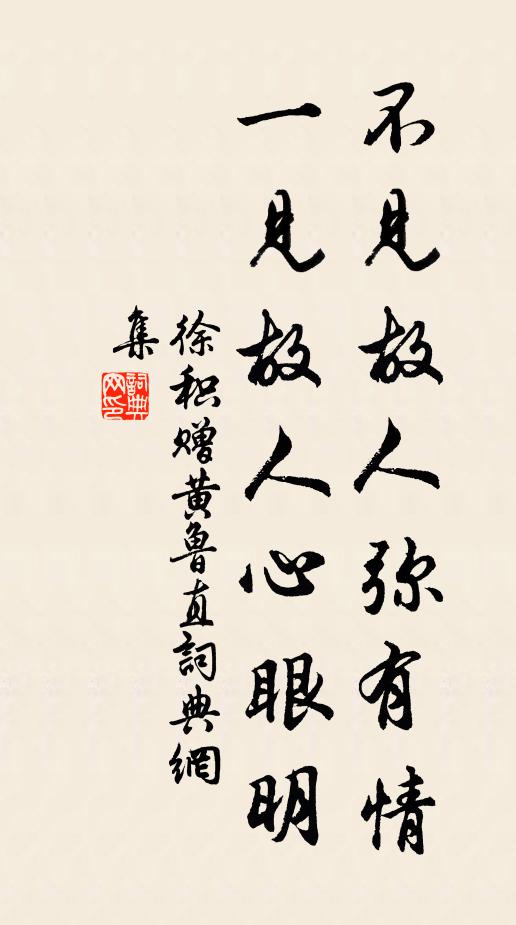 不見故人弥有情
一見故人心眼明
徐积赠黄魯直詞典網
集
詞典
网印